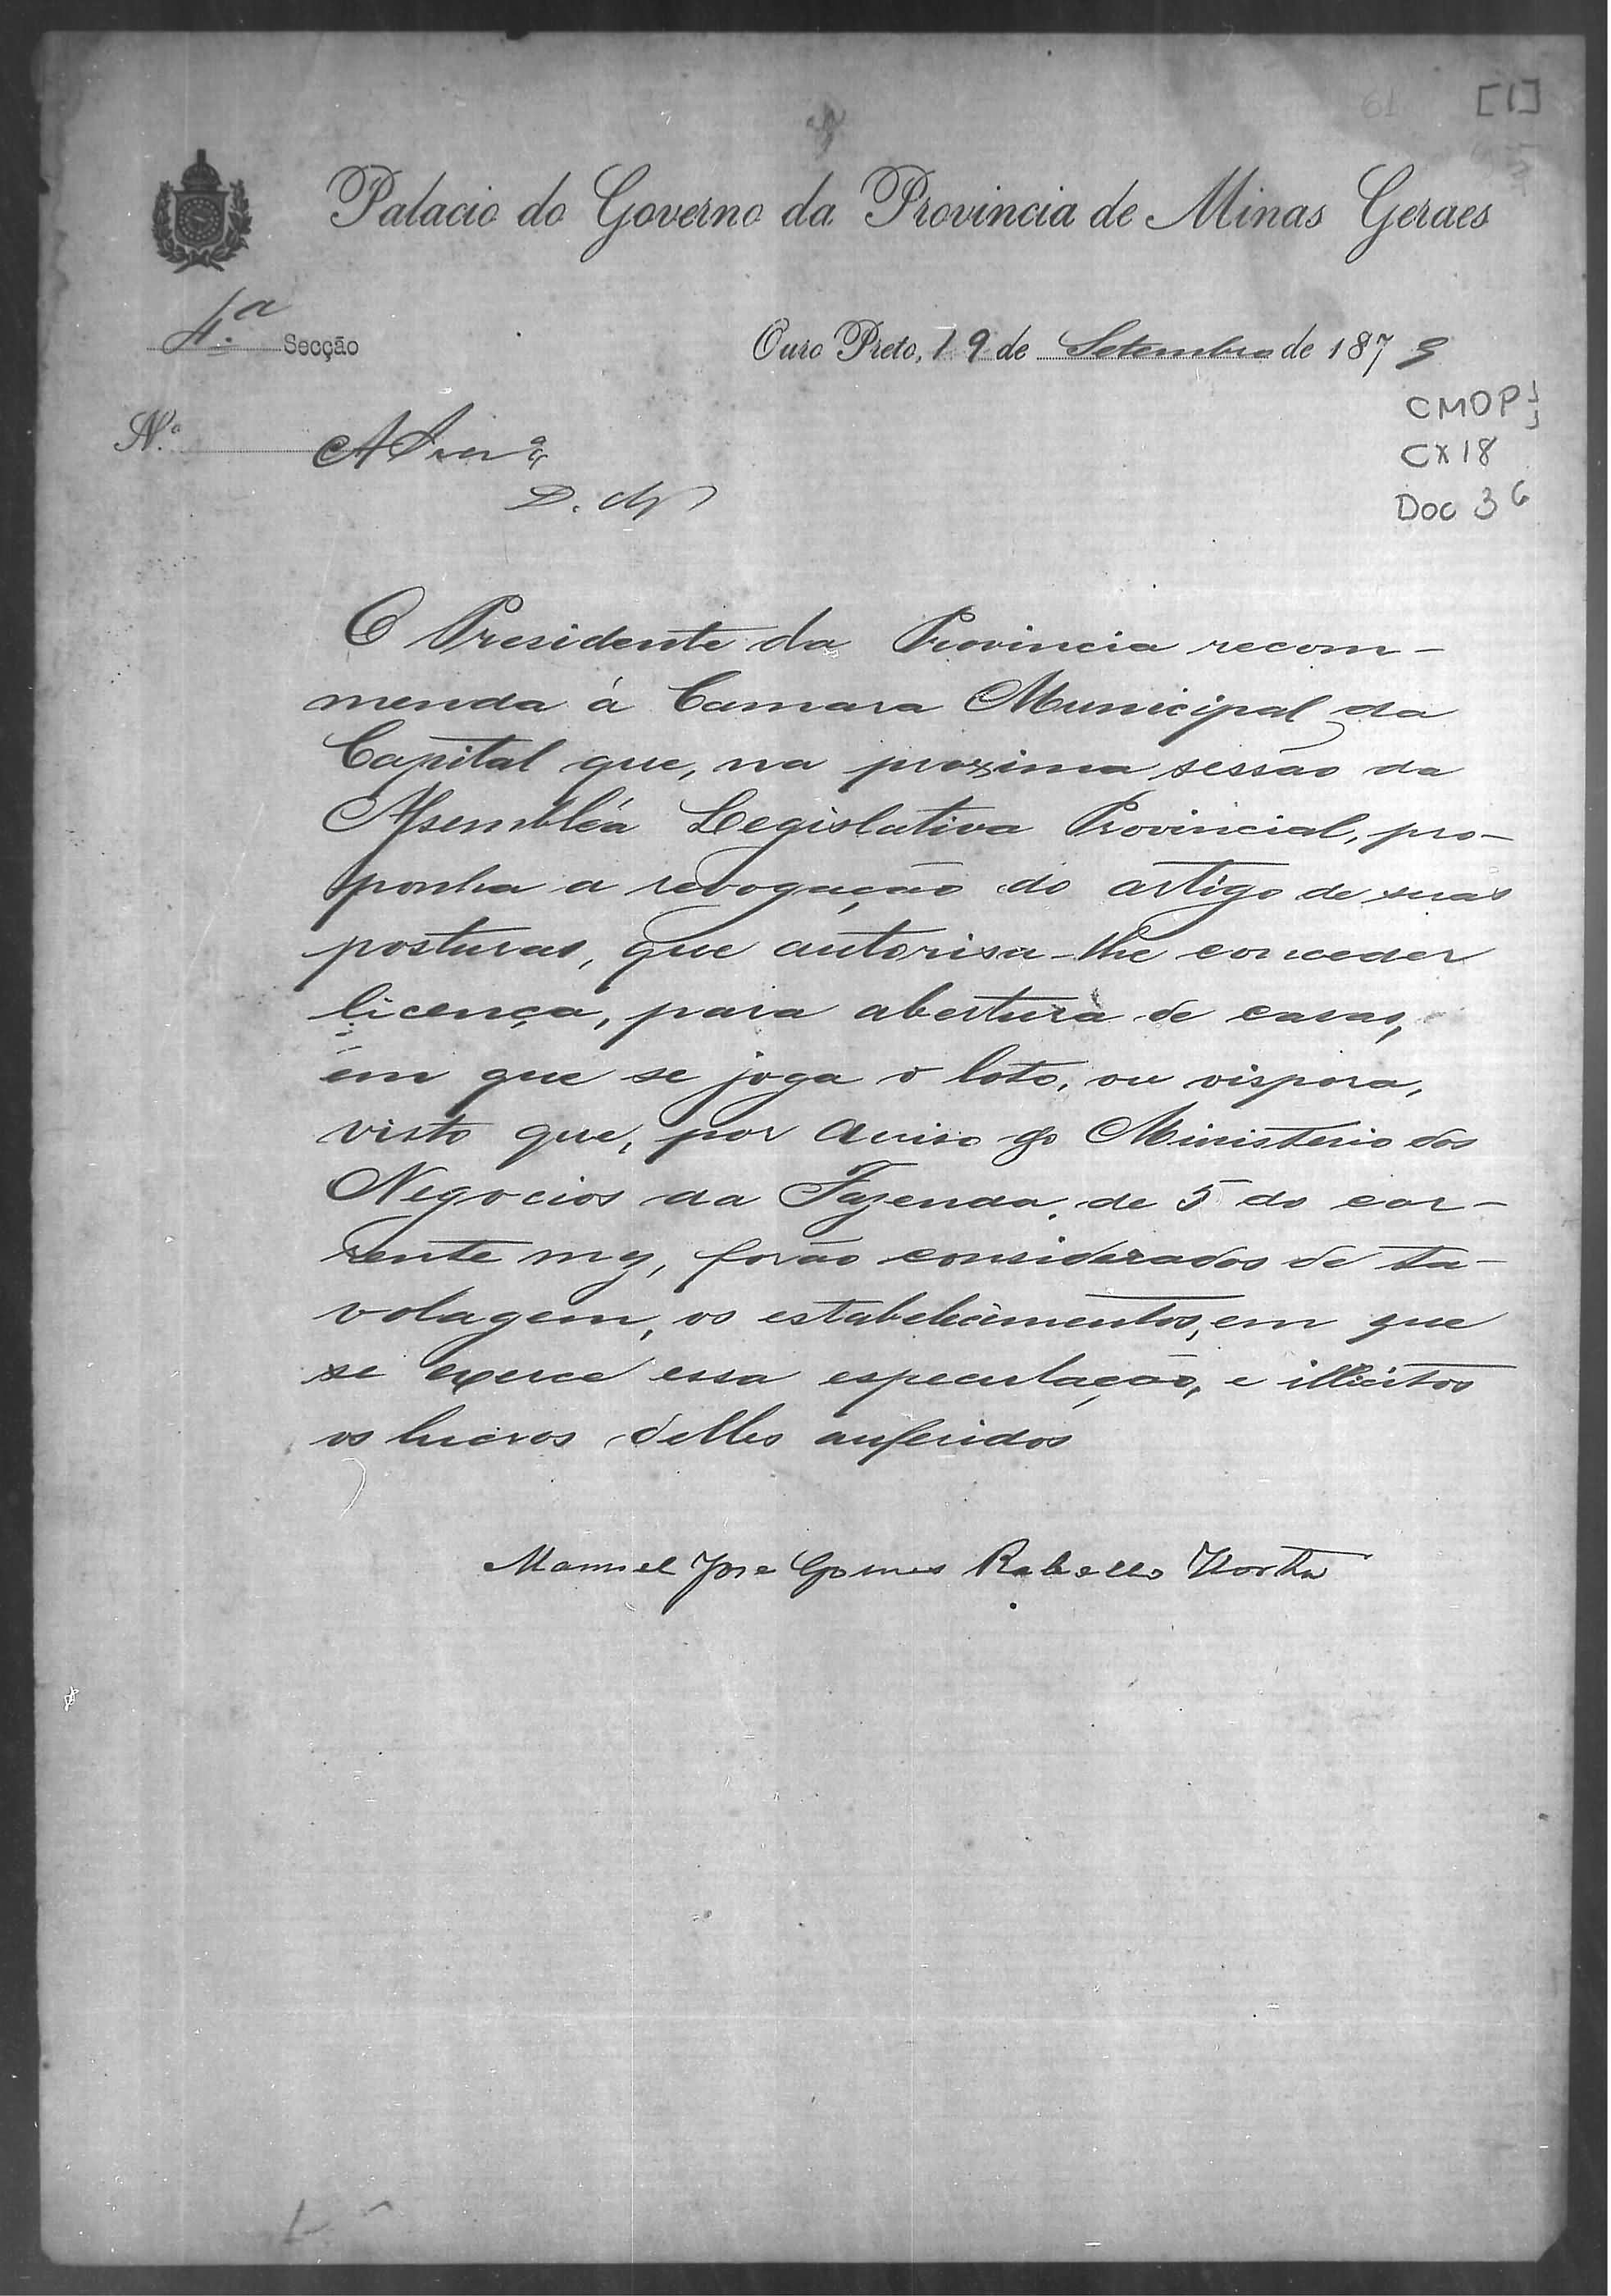 [1]
61
Palacio do Governo da Provincia de Minas Geraes
4.ª Secção
Ouro Preto, 19 de Setembro de 1879
CMOP
N.º
CX 18
Doc 36
O Presidente da Provincia recom-
menda á Camara Municipal da
Capital que, na proxima sessão da
Assembléa Legislativa Provincial, pro-
ponha a revogação do artigo de suas
posturas, que autorisa-lhe conceder
licença, para abertura de casas,
em que se joga o loto, ou vispora,
visto que, por Aviso do Ministerio dos
Negocios da Fazenda, de 5 do cor-
rente mez, forão considerados de ta-
volagem, os estabelecimentos, em que
se exerce essa especulação, e illicitos
os lucros delles auferidos
Manuel Jose Gomes Rebello Horta